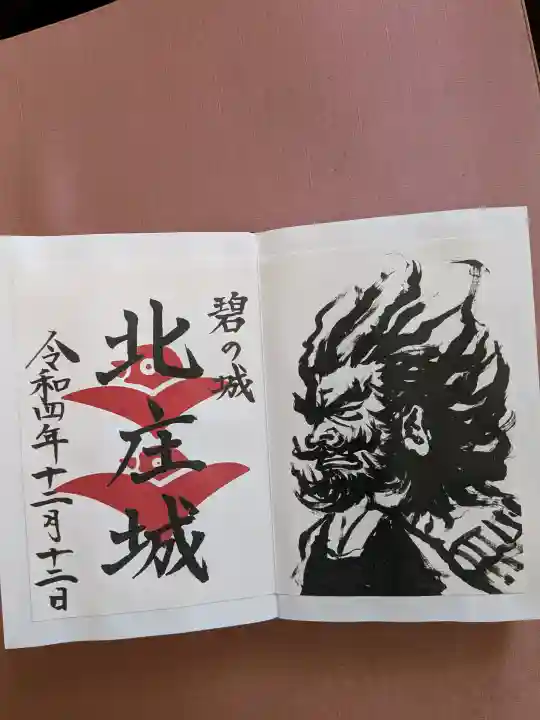 碧の城
北庄城
令和四年十二月十二日